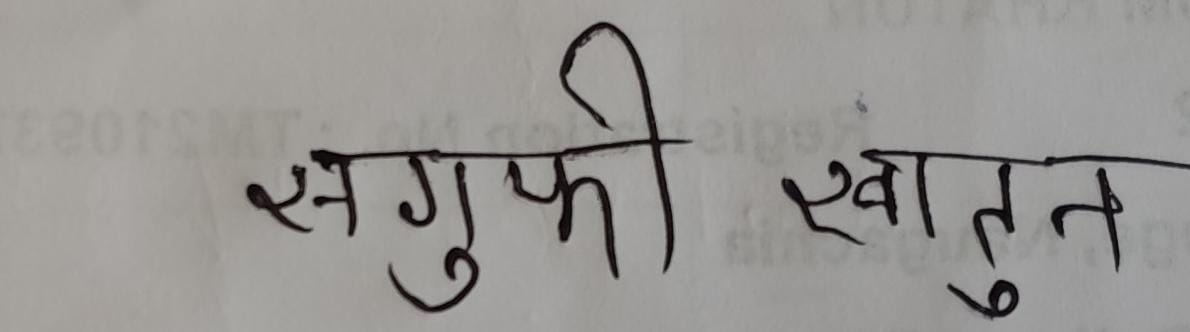 सगुफी खातुन